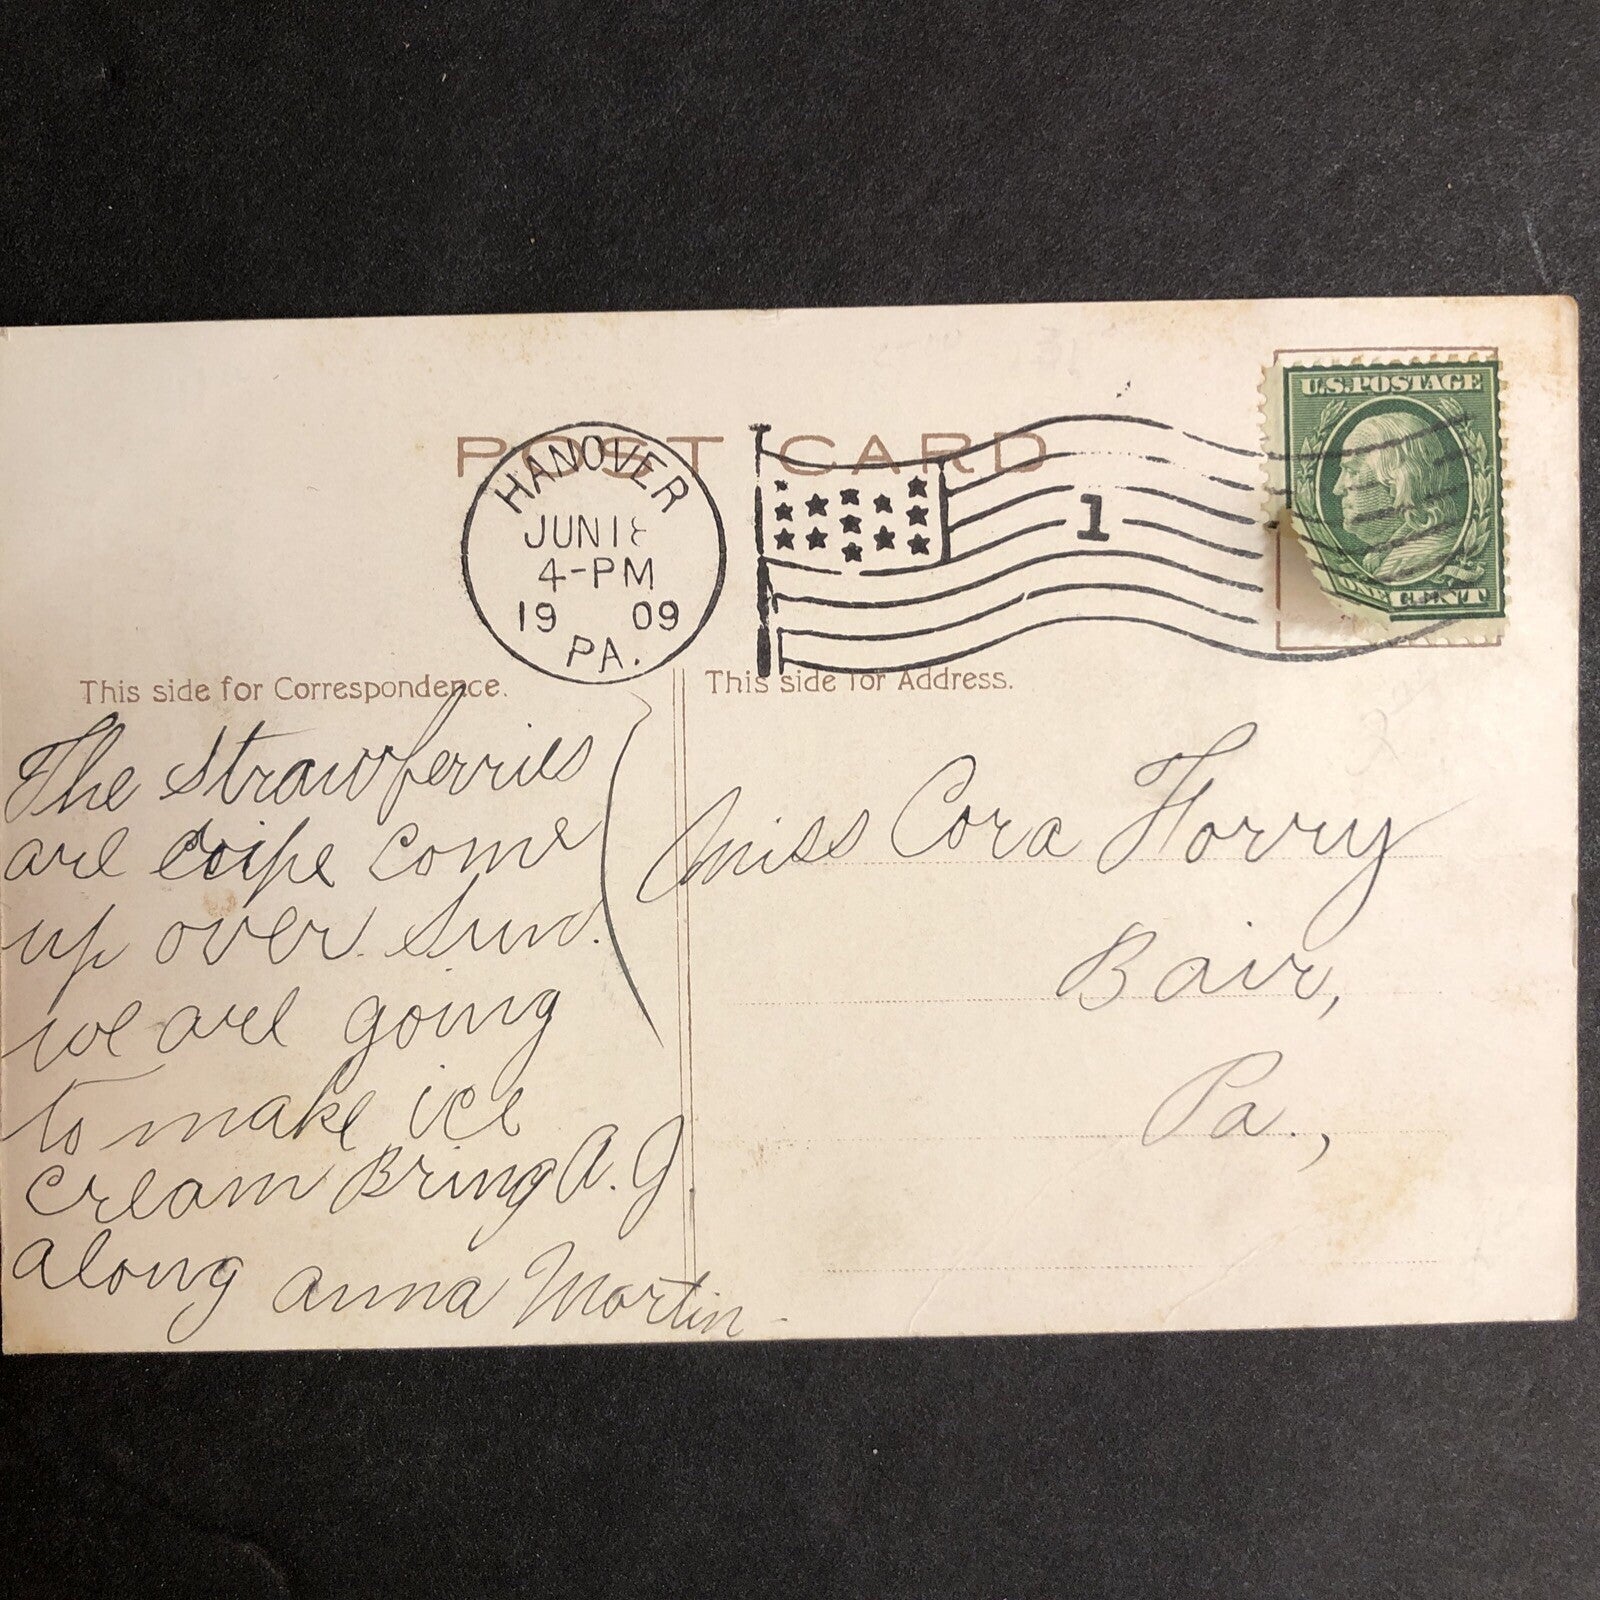 POST CARD
HANOVER
JUN 18
4-PM
19 09
PA.
1
U.S. POSTAGE
ONE CENT
This side for Correspondence.
The Strawberries
are ripe come
up over Sun.
we are going
to make ice
cream Bring A. J.
along Anna Martin
This side for Address.
Miss Cora Forry
Bair,
Pa.,